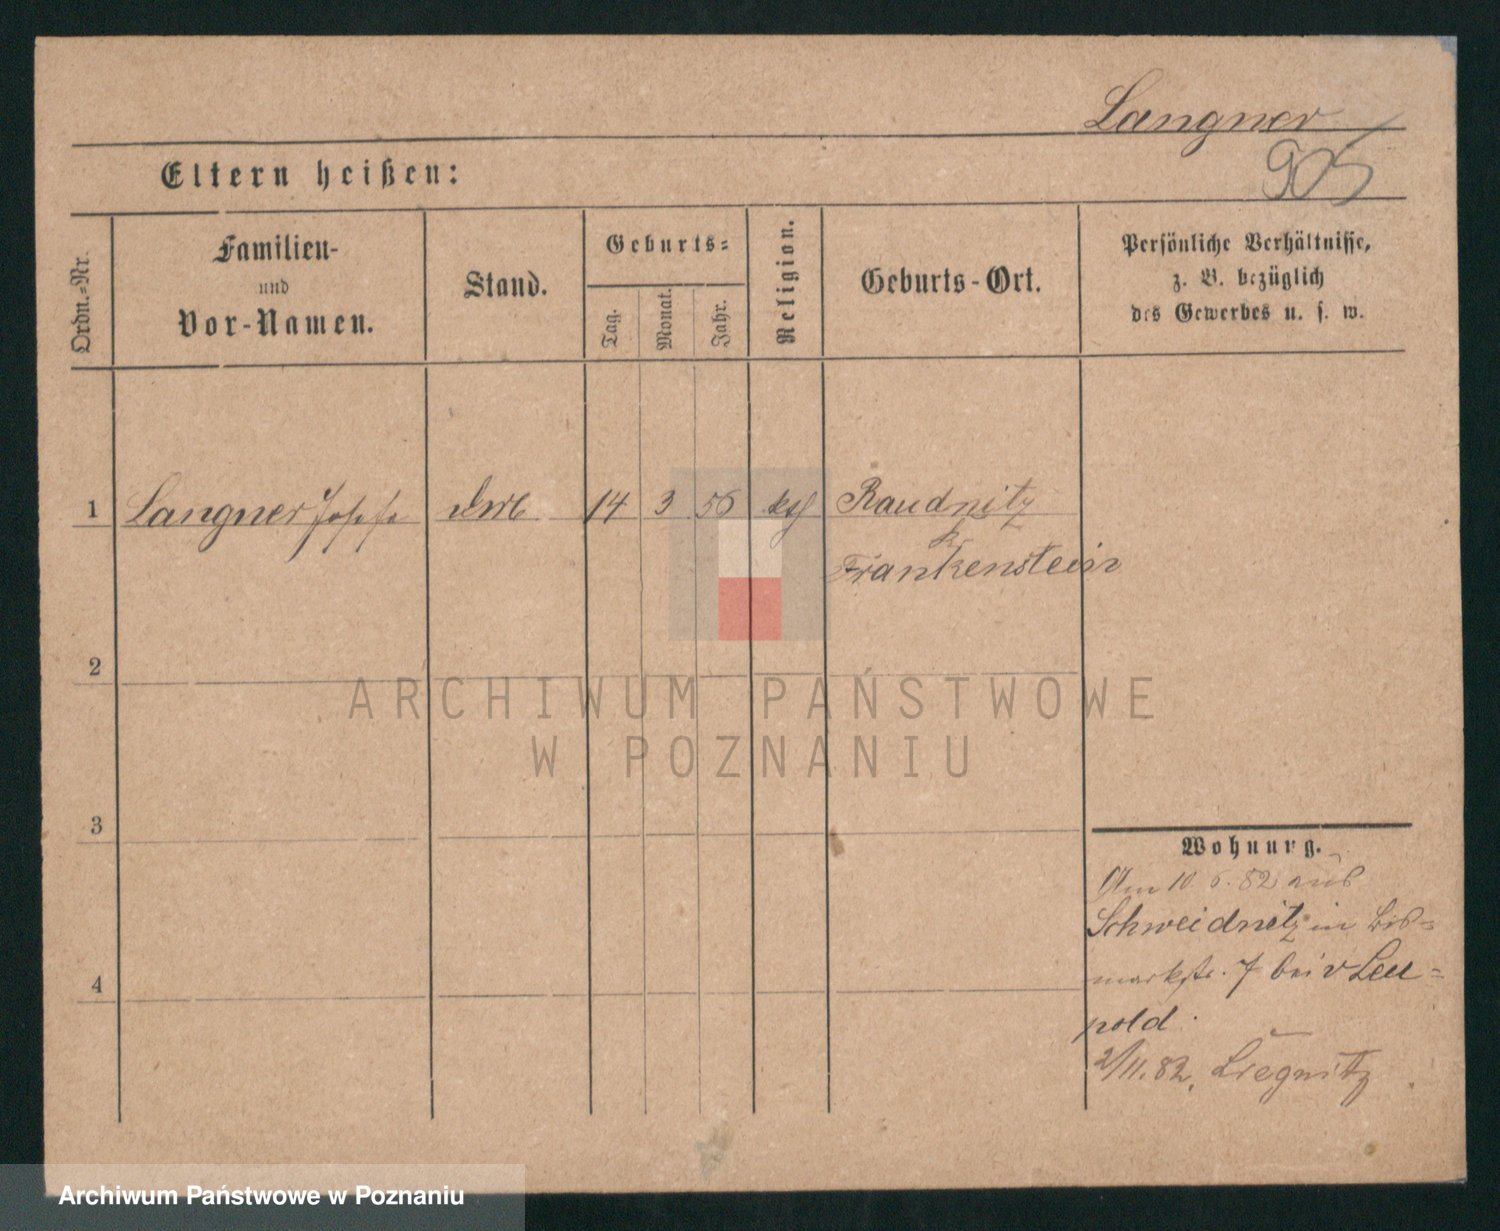 Langner
905
Eltern heißen:
Ordn.-Nr.
Familien-
und
Vor-Namen.
Stand.
Geburts-
Tag.
Monat.
Jahr.
Religion.
Geburts-Ort.
Persönliche Verhältnisse,
z. B. bezüglich
des Gewerbes u. s. w.
1 Langner Josefa 14 3 56 kth Raudnitz
Kr
Frankenstein
2
ARCHIWUM PAŃSTWOWE
W POZNANIU
3
Wohnung.
Am 10. 6. 82 aus
Schweidnitz in Bis=
markstr. 7 bei v Leu=
pold.
4
2/11. 82. Liegnitz
Archiwum Państwowe w Poznaniu